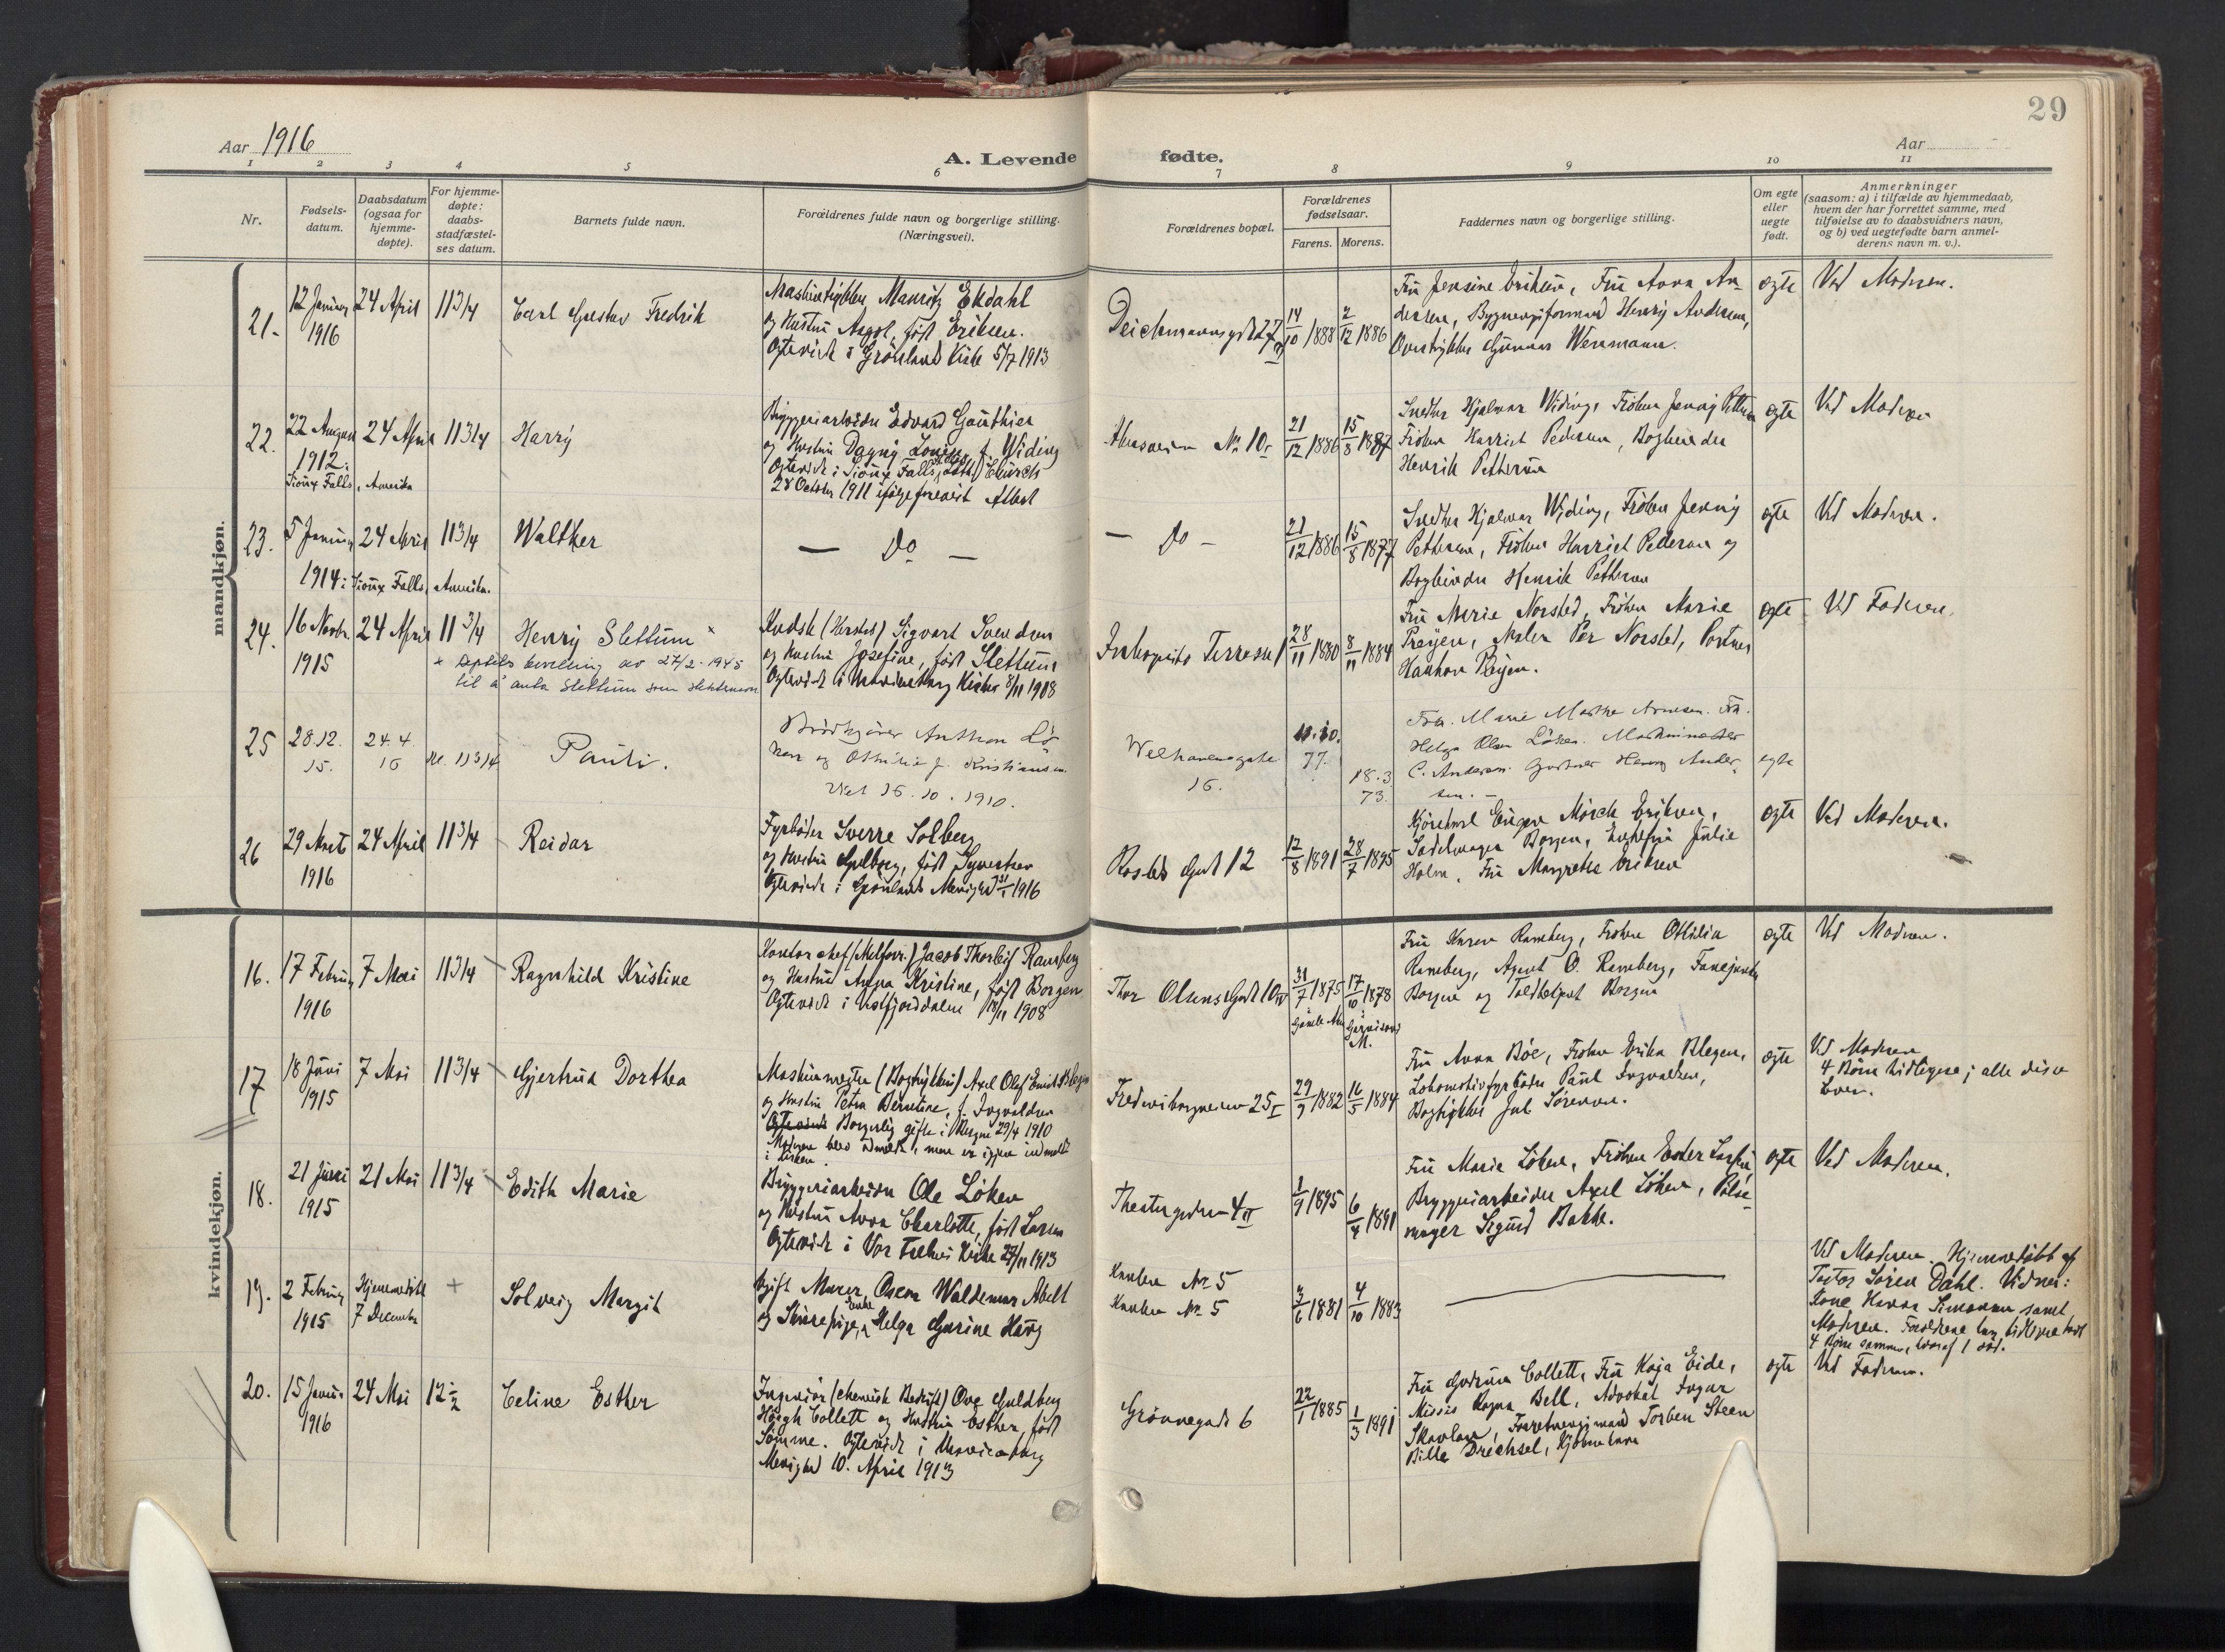 29
Aar 1916
A. Levende fødte.
Aar
1 2 3 4 5 6 7 8 9 10 11
Nr.
Fødsels-
datum.
Daabsdatum
(ogsaa for
hjemme-
døpte).
For hjemme-
døpte:
daabs-
stadfæstel-
ses datum.
Barnets fulde navn.
Forældrenes fulde navn og borgerlige stilling.
(Næringsvei).
Forældrenes bopæl.
Forældrenes
fødselsaar.
Farens. Morens.
Faddernes navn og borgerlige stilling.
Om egte
eller
uegte
født.
Anmerkninger
(saasom: a) i tilfælde av hjemmedaab,
hvem der har forrettet samme, med
tilføielse av to daabsvidners navn,
og b) ved uegtefødte barn anmel-
derens navn m. v.).
mandkjøn.
21.
12 Januar
1916
24 April
11 3/4
Carl Gustav Fredrik
Mauritz Ekdahl
og Hustru født Eriksen.
Ogteviede i Grönlands Kirke 5/7 1913
Deichmannsgt 27
14/10 1888
2/12 1886
Fru Jensine Eriksen, Fru Anna An-
dersen, Henry Andersen,
Gunnar
egte
Ved Moderen.
22.
22 August
1912.
Sioux Falls, Amerika
24 April
11 3/4
Harry
Bryggeriarbeider Edvard Gauthier
og Hustru Dagny Louise, f. Widing
Ogteviede i Sioux Falls Church
28 October 1911 ifølge forevist Attest
Akersveien No 10
21/12 1886
15/8 1887
Snedker Hjalmar Widing, Fröken Jenny Pettersen
Fröken Harriet Pedersen, Bogbinder
Henrik Pettersen
egte
Ved Moderen
23.
5 Januar
1914 i Sioux Falls, Amerika.
24 April
11 3/4
Walther
— Do —
— Do —
21/12 1886
15/8 1877
Snedker Hjalmar Widing, Fröken Jenny
Pettersen, Fröken Harriet Pedersen og
Bogbinder Henrik Pettersen
egte
Ved Moderen.
24.
16 Novbr.
1915
24 April
11 3/4
Henry Slettum x
x bevilling av 27/2-1945
til å anta Slettum som slektsnavn
Kudsk (Hersleb) Sigvart Svendsen
og Hustru Josefine, født Slettum
Ogteviede i Uranienborg Kirke 8/11 1908
Terrasse 1
28/11 1880
8/11 1884
Fru Marie Norsted, Fröken Marie
Maler Per Norsted, Portner
egte
Ved Faderen.
25
28.12.
15.
24.4.
16
kl. 11 3/4
Pauli.
Brödkjører Anthon Lö-
ken og Othilie f. Kristiansen.
Viet 16.10.1910.
Welhavensgate
16.
11.10.
77.
18.3
73.
Fru. Marie Marthe Arnesen. Frk.
Helga Olsen Löken. Maskinmester
C. Andersen. Gartner Henry Ander-
sen. —
egte
26
29 Marts
1916
24 April
11 3/4
Reidar
Fyrbøder Sverre Solberg
og Hustru født Syvertsen
Ogteviede i Grönlands Menighed 1916
Rosteds Gade 12
12/8 1891
28/7 1895
Eugen Mörck Eriksen,
Sadelmager Borgen, Enkefru Julie
Holm, Fru Margrethe Eriksen
egte
Ved Moderen.
kvindekjøn.
16.
17 Februar
1916
7 Mai
11 3/4
Ragnhild Kristine
Kontorchef Jacob Thorleif Ramberg
og Hustru Anna Kristine, født Borgen
Ogteviede i 1908
Thor Olsens Gade 10 IV
31/7 1875
Gamle Aker
17/10 1878
i Garnisons
M.
Fru Karen Ramberg, Fröken Othilia
Ramberg, Agent O. Ramberg,
Borgen og Borgen
egte
Ved Moderen.
17
18 Juni
1915
7 Mai
11 3/4
Gjertrud Dorthea
Maskinmester (Bogtrykkeri) Axel Olaf Emil
og Hustru Petra Berntine, f. Ingvaldsen
Borgerlig gifte i Bergen 29/4 1910
Moderen blev udmeldt, men er igjen indmeldt
i Kirken.
Fredensborgveien 25 I
29/9 1882
16/5 1884
Fru Anna Böe, Fröken Erika Blegen,
Lokomotivfyrbøder Paul Ingvaldsen,
Bogtrykker Jul. Sörensen.
egte
Ved Moderen
4 Børn tidligere; alle disse
lever.
18.
21 Juni
1915
21 Mai
11 3/4
Edith Marie
Bryggeriarbeider Ole Löken
og Hustru Anna Charlotte, født Larsen
Ogteviede i Vor Frelsers Kirke 27/11 1913
Theatergaden 4 II
1/9 1895
6/4 1891
Fru Marie Löken, Fröken Ester Larsen,
Bryggeriarbeider Axel Löken, Pölse-
mager Sigurd Bakke.
egte
Ved Moderen.
19.
2 Februar
1915
Hjemmedøbt
7 December
+
Solveig Margit
Ugift Murer, Oscar Waldemar Abelt
og Helga Gurine Haug
No 5
No 5
3/6 1881
4/10 1883
Ved Moderen. Hjemmedöbt af
Pastor Sören Dahl. Vidner:
Kone Hanna Simonsen samt
Moderen. Forældrene har tidligere havt
4 Børn sammen, hvoraf 1 død.
20.
15 Januar
1916
24 Mai
12 1/2
Celine Esther
Ingeniør (chemisk Bedrift) Ove Guldberg
Høegh Collett og Hustru Esther født
Sömme. Ogteviede i Uranienborg
Menighed 10. April 1913
Grönnegade 6
22/1 1885
1/3 1891
Fru Gudrun Collett, Fru Kaja Eide,
Missis Ragna Bell, Advokat Ingar
Skavlan, Forretningsmand Torben Steen
Bille Drechsel, Kjöbenhavn
egte
Ved Faderen.